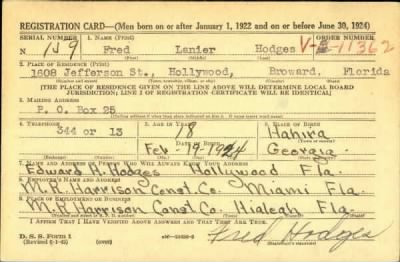 REGISTRATION CARD—(Men born on or after January 1, 1922 and on or before June 30, 1924)
SERIAL NUMBER 1. NAME (Print) ORDER NUMBER
N 159 Fred Lanier Hodges V-11362
(First) (Middle) (Last)
2. PLACE OF RESIDENCE (Print)
1608 Jefferson St., Hollywood, Broward, Florida
[THE PLACE OF RESIDENCE GIVEN ON THE LINE ABOVE WILL DETERMINE LOCAL BOARD
JURISDICTION; LINE 2 OF REGISTRATION CERTIFICATE WILL BE IDENTICAL]
3. MAILING ADDRESS
P. O. Box 25
4. TELEPHONE 5. AGE IN YEARS 6. PLACE OF BIRTH
344 or 13 18 Hahira
DATE OF BIRTH
Feb. 19 1924 Georgia
7. NAME AND ADDRESS OF PERSON WHO WILL ALWAYS KNOW YOUR ADDRESS
Edward H. Hodges Hollywood Fla.
8. EMPLOYER'S NAME AND ADDRESS
M.R. Harrison Const. Co. Miami Fla.
9. PLACE OF EMPLOYMENT OR BUSINESS
M.R. Harrison Const. Co. Hialeah Fla.
I AFFIRM THAT I HAVE VERIFIED ABOVE ANSWERS AND THAT THEY ARE TRUE.
D. S. S. Form 1
Fred Hodges